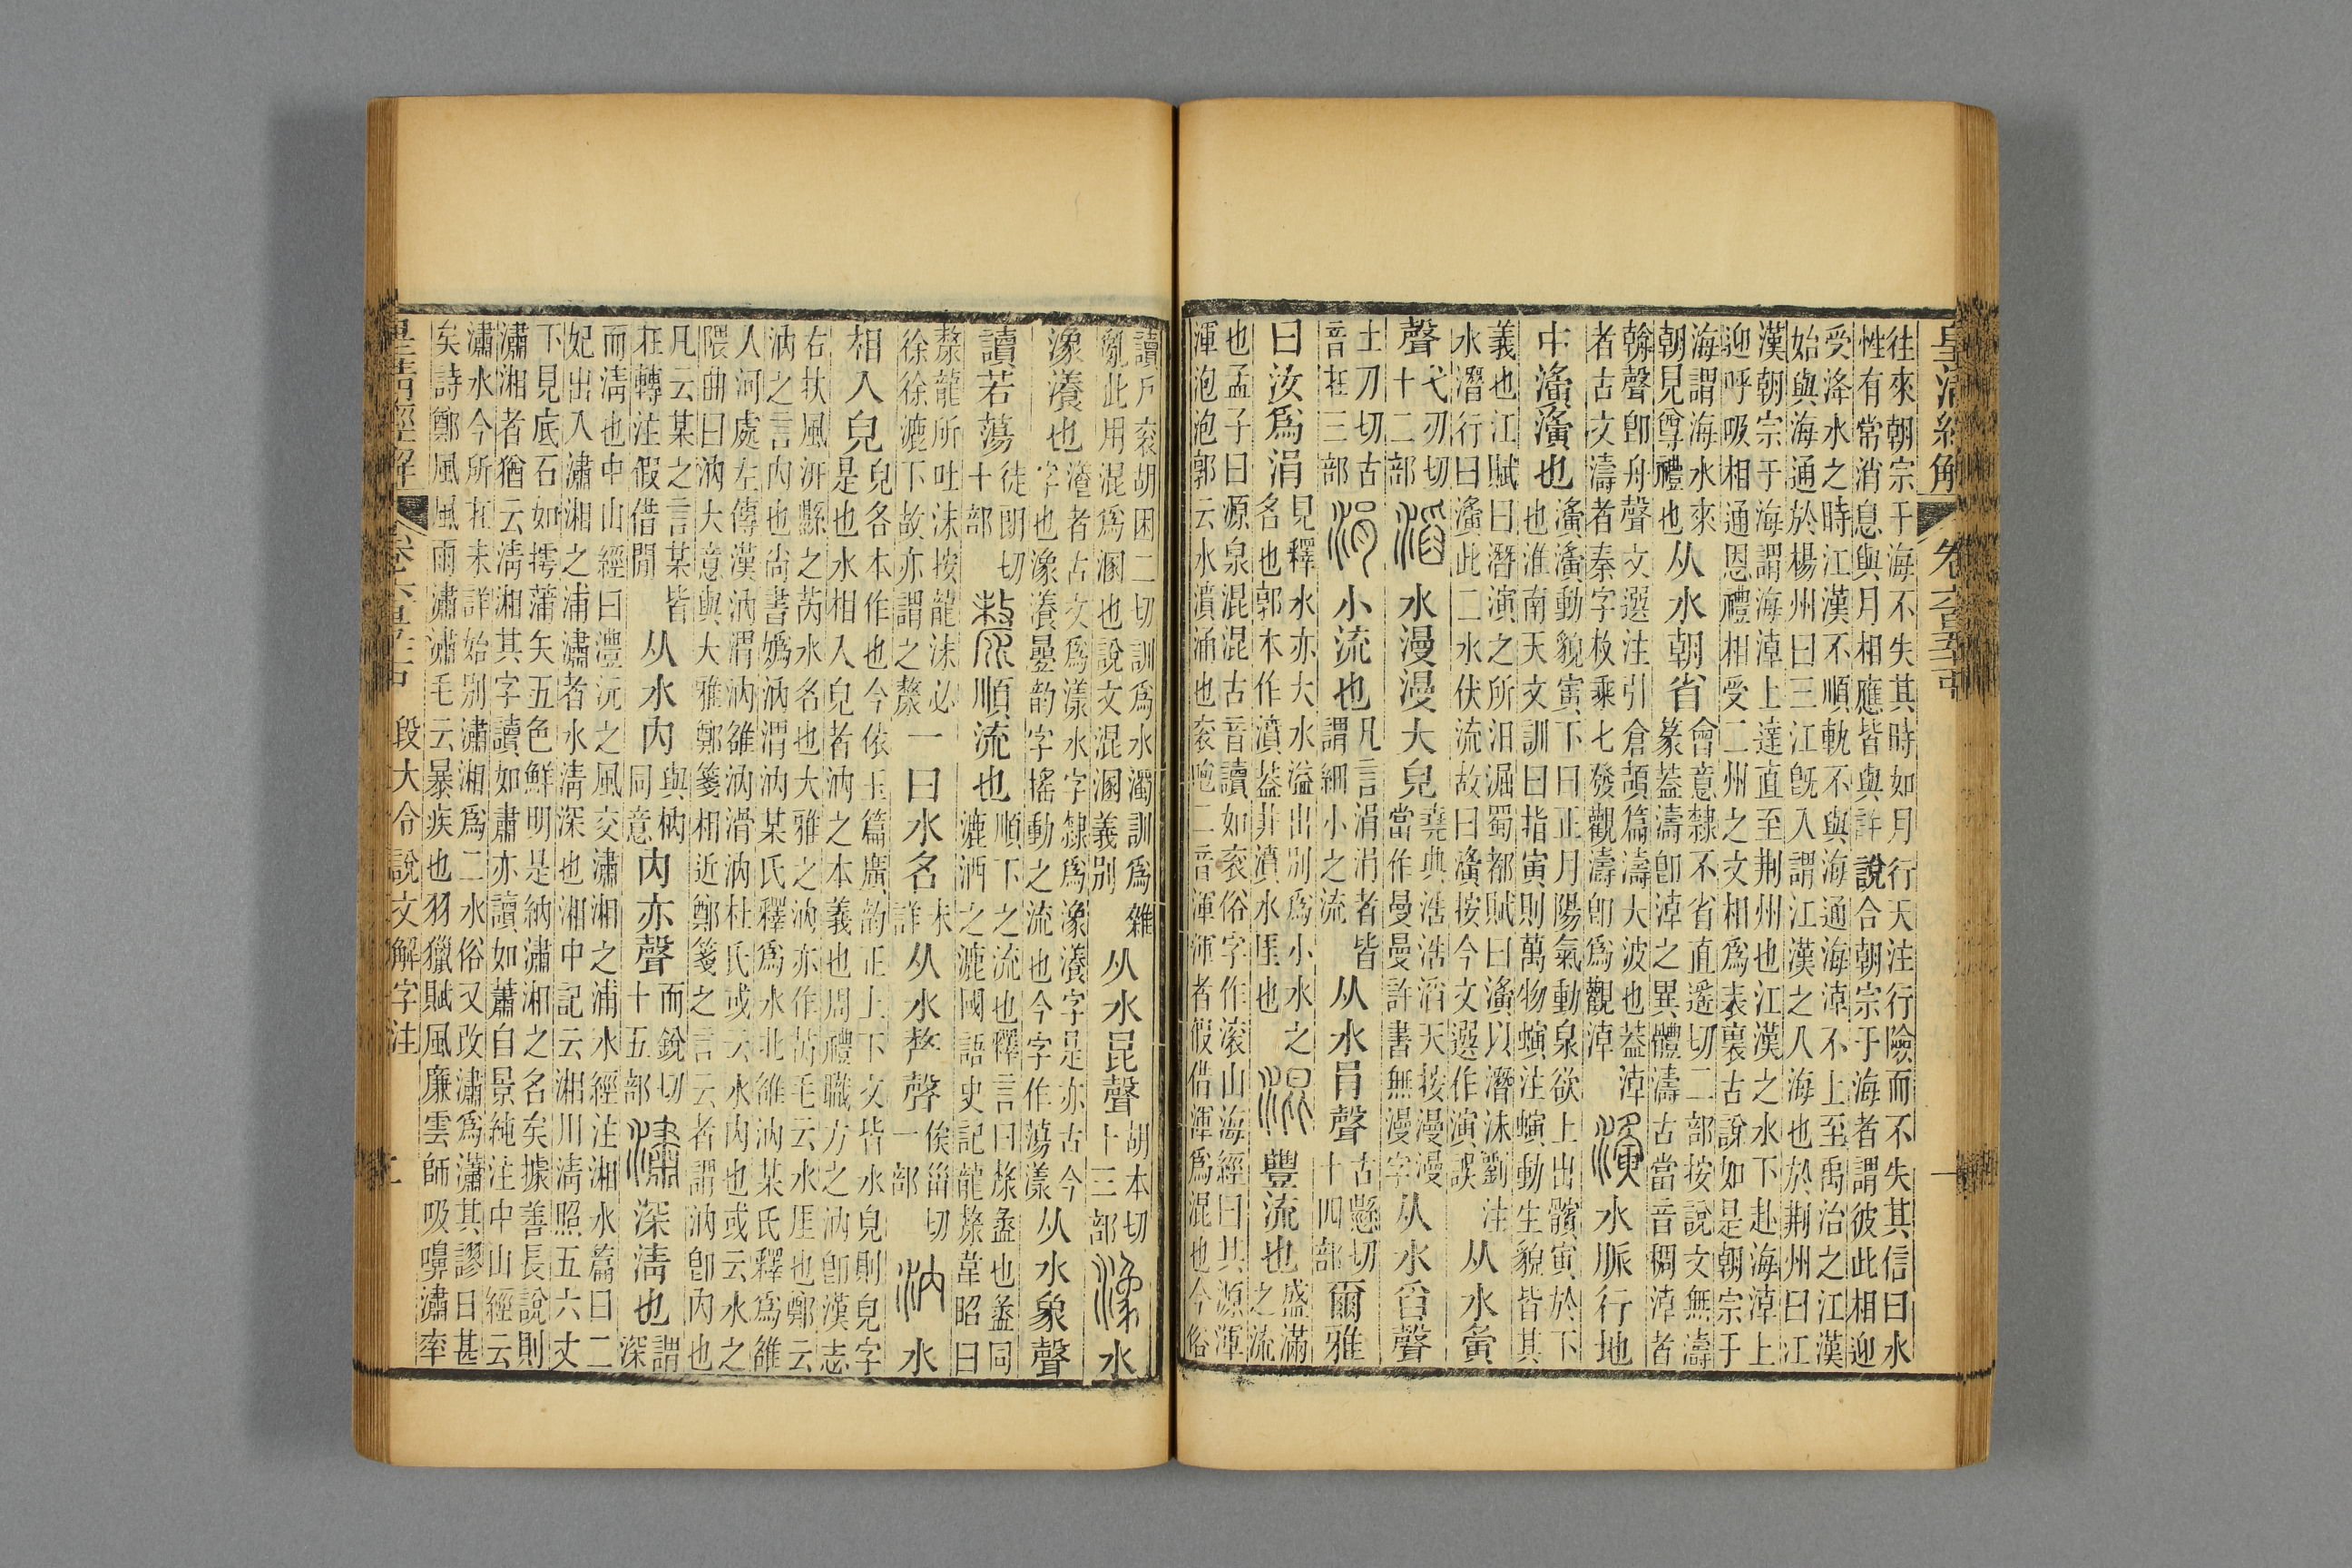 皇清經解 卷六百五十
往來朝宗于海不失其時如月行天注行險而不失其信曰水
性有常消息與月相應皆與許說合朝宗于海者謂彼此相迎
受洚水之時江漢不順軌不與海通海淖不上至禹治之江漢
始與海通於楊州曰三江旣入謂江漢之入海也於荆州曰江
漢朝宗于海謂海淖上達直至荆州也江漢之水下赴海淖上
迎呼吸相通恩禮相受二州之文相爲表裏古說如是朝宗于
海謂海水來朝見尊禮也从水朝省會意隸不省直遥切二部按說文無濤篆葢濤卽淖之異體濤古當音稠淖者
翰聲卽舟聲文選注引倉頡篇濤大波也葢淖者古文濤者秦字枚乘七發觀濤卽爲觀淖濥水脈行地
中濥濥也濥濥動貌寅下曰正月陽氣動泉欲上出髕寅於下也淮南天文訓曰指寅則萬物螾注螾動生貌皆其
義也江賦曰潛演之所汨淈蜀都賦曰濥以潛沬劉注水潛行曰濥此二水伏流故曰濥按今文選作演誤从水寅
聲弋刃切十二部滔水漫漫大皃堯典浩浩滔天按漫漫當作曼曼許書無漫字从水舀聲
土刀切古音在三部涓小流也凡言涓涓者皆謂細小之流从水肙聲古懸切十四部爾雅
曰汝爲涓見釋水亦大水溢出別爲小水之名也郭本作濆葢非濆水厓也混豐流也盛滿之流
也孟子曰源泉混混古音讀如衮俗字作滚山海經曰其源渾
渾泡泡郭云水濆涌也衮咆二音渾渾者假借渾爲混也今俗
讀戶衮胡困二切訓爲水濁訓爲雜亂此用混爲溷也說文混溷義別从水昆聲胡本切十三部潒水
潒瀁也瀁者古文爲漾水字隸爲潒瀁字是亦古今字也潒瀁曡韵字搖動之流也今字作蕩漾从水象聲
讀若蕩徒朗切十部漦順流也順下之流也釋言曰漦盝也盝同漉洒之漉國語史記龍漦韋昭曰
漦龍所吐沫按龍沫必徐徐漉下故亦謂之漦一曰水名未詳从水𠩺聲俟甾切一部汭水
相入皃皃各本作也今依玉篇廣韵正上下文皆水皃則皃字是也水相入皃者汭之本義也周禮職方之汭卽漢志
右扶風汧縣之芮水名也大雅之汭亦作芮毛云水厓也鄭云
汭之言內也尙書嬀汭渭汭某氏釋爲水北雒汭某氏釋爲雒
人河處左傳漢汭渭汭雒汭滑汭杜氏或云水內也或云水之
隈曲曰汭大意與大雅鄭箋相近鄭箋之言云者謂汭卽內也
凡云某之言某皆在轉注假借閒从水內與枘同意內亦聲而銳切十五部潚深淸也謂深
而淸也中山經曰澧沅之風交潚湘之浦水經注湘水篇曰二
妃出入潚湘之浦潚者水淸深也湘中記云湘川淸照五六丈
下見底石如摴蒲矢五色鮮明是納潚湘之名矣據善長說則
潚湘者猶云淸湘其字讀如肅亦讀如蕭自景純注中山經云
潚水今所在未詳始別潚湘爲二水俗又改潚爲瀟其謬曰甚
矣詩鄭風風雨潚潚毛云暴疾也羽獵賦風廉雲師吸嚊潚率
皇清經解 卷六百五十 段大令說文解字注